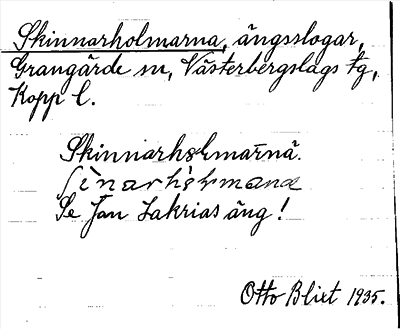 Skinnarholmarna, ängsslogar,
Grangärde sn, Västerbergslags fg,
Kopp l.
Skinnarhɞlmarnā.
Se Jan Zakrias äng!
Otto Blixt 1935.